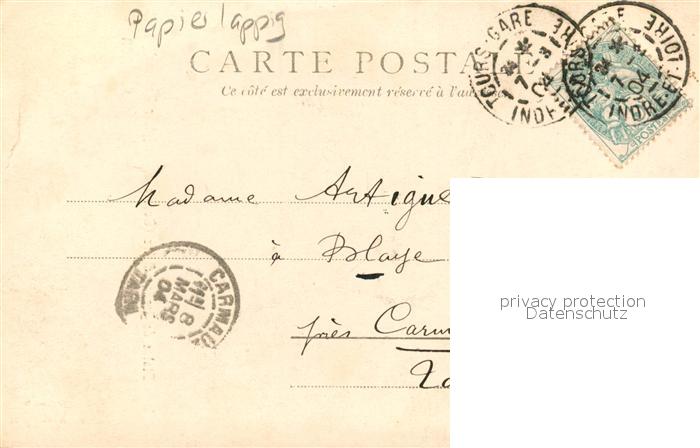 Papier lappig
CARTE POSTALE
Ce côté est exclusivement réservé à l'adresse
TOURS-GARE
7 -3
04
INDRE-ET-LOIRE
TOURS-GARE
7
04
INDRE-ET-LOIRE
POSTES
Madame Artigue
à Blaye
près Carm
Ta
CARMAUX
8
MARS
04
TARN
privacy protection
Datenschutz